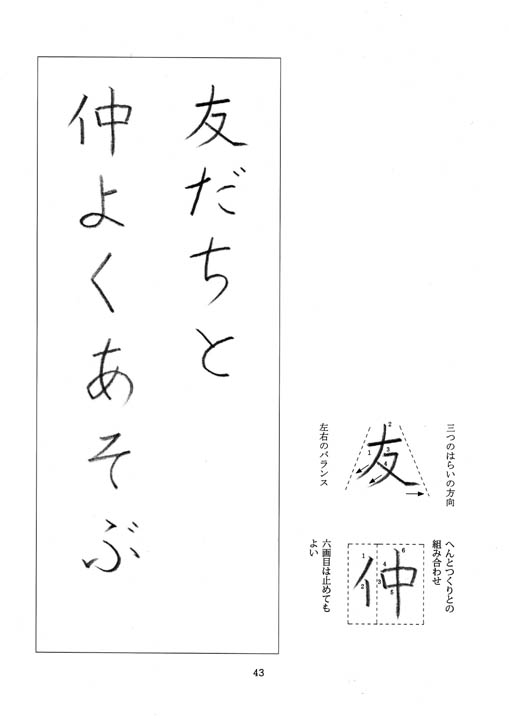 友だちと
仲よくあそぶ
三つのはらいの方向
友
1
2
3
4
左右のバランス
へんとつくりとの
組み合わせ
仲
1
2
3
4
5
6
六画目は止めても
よい
43